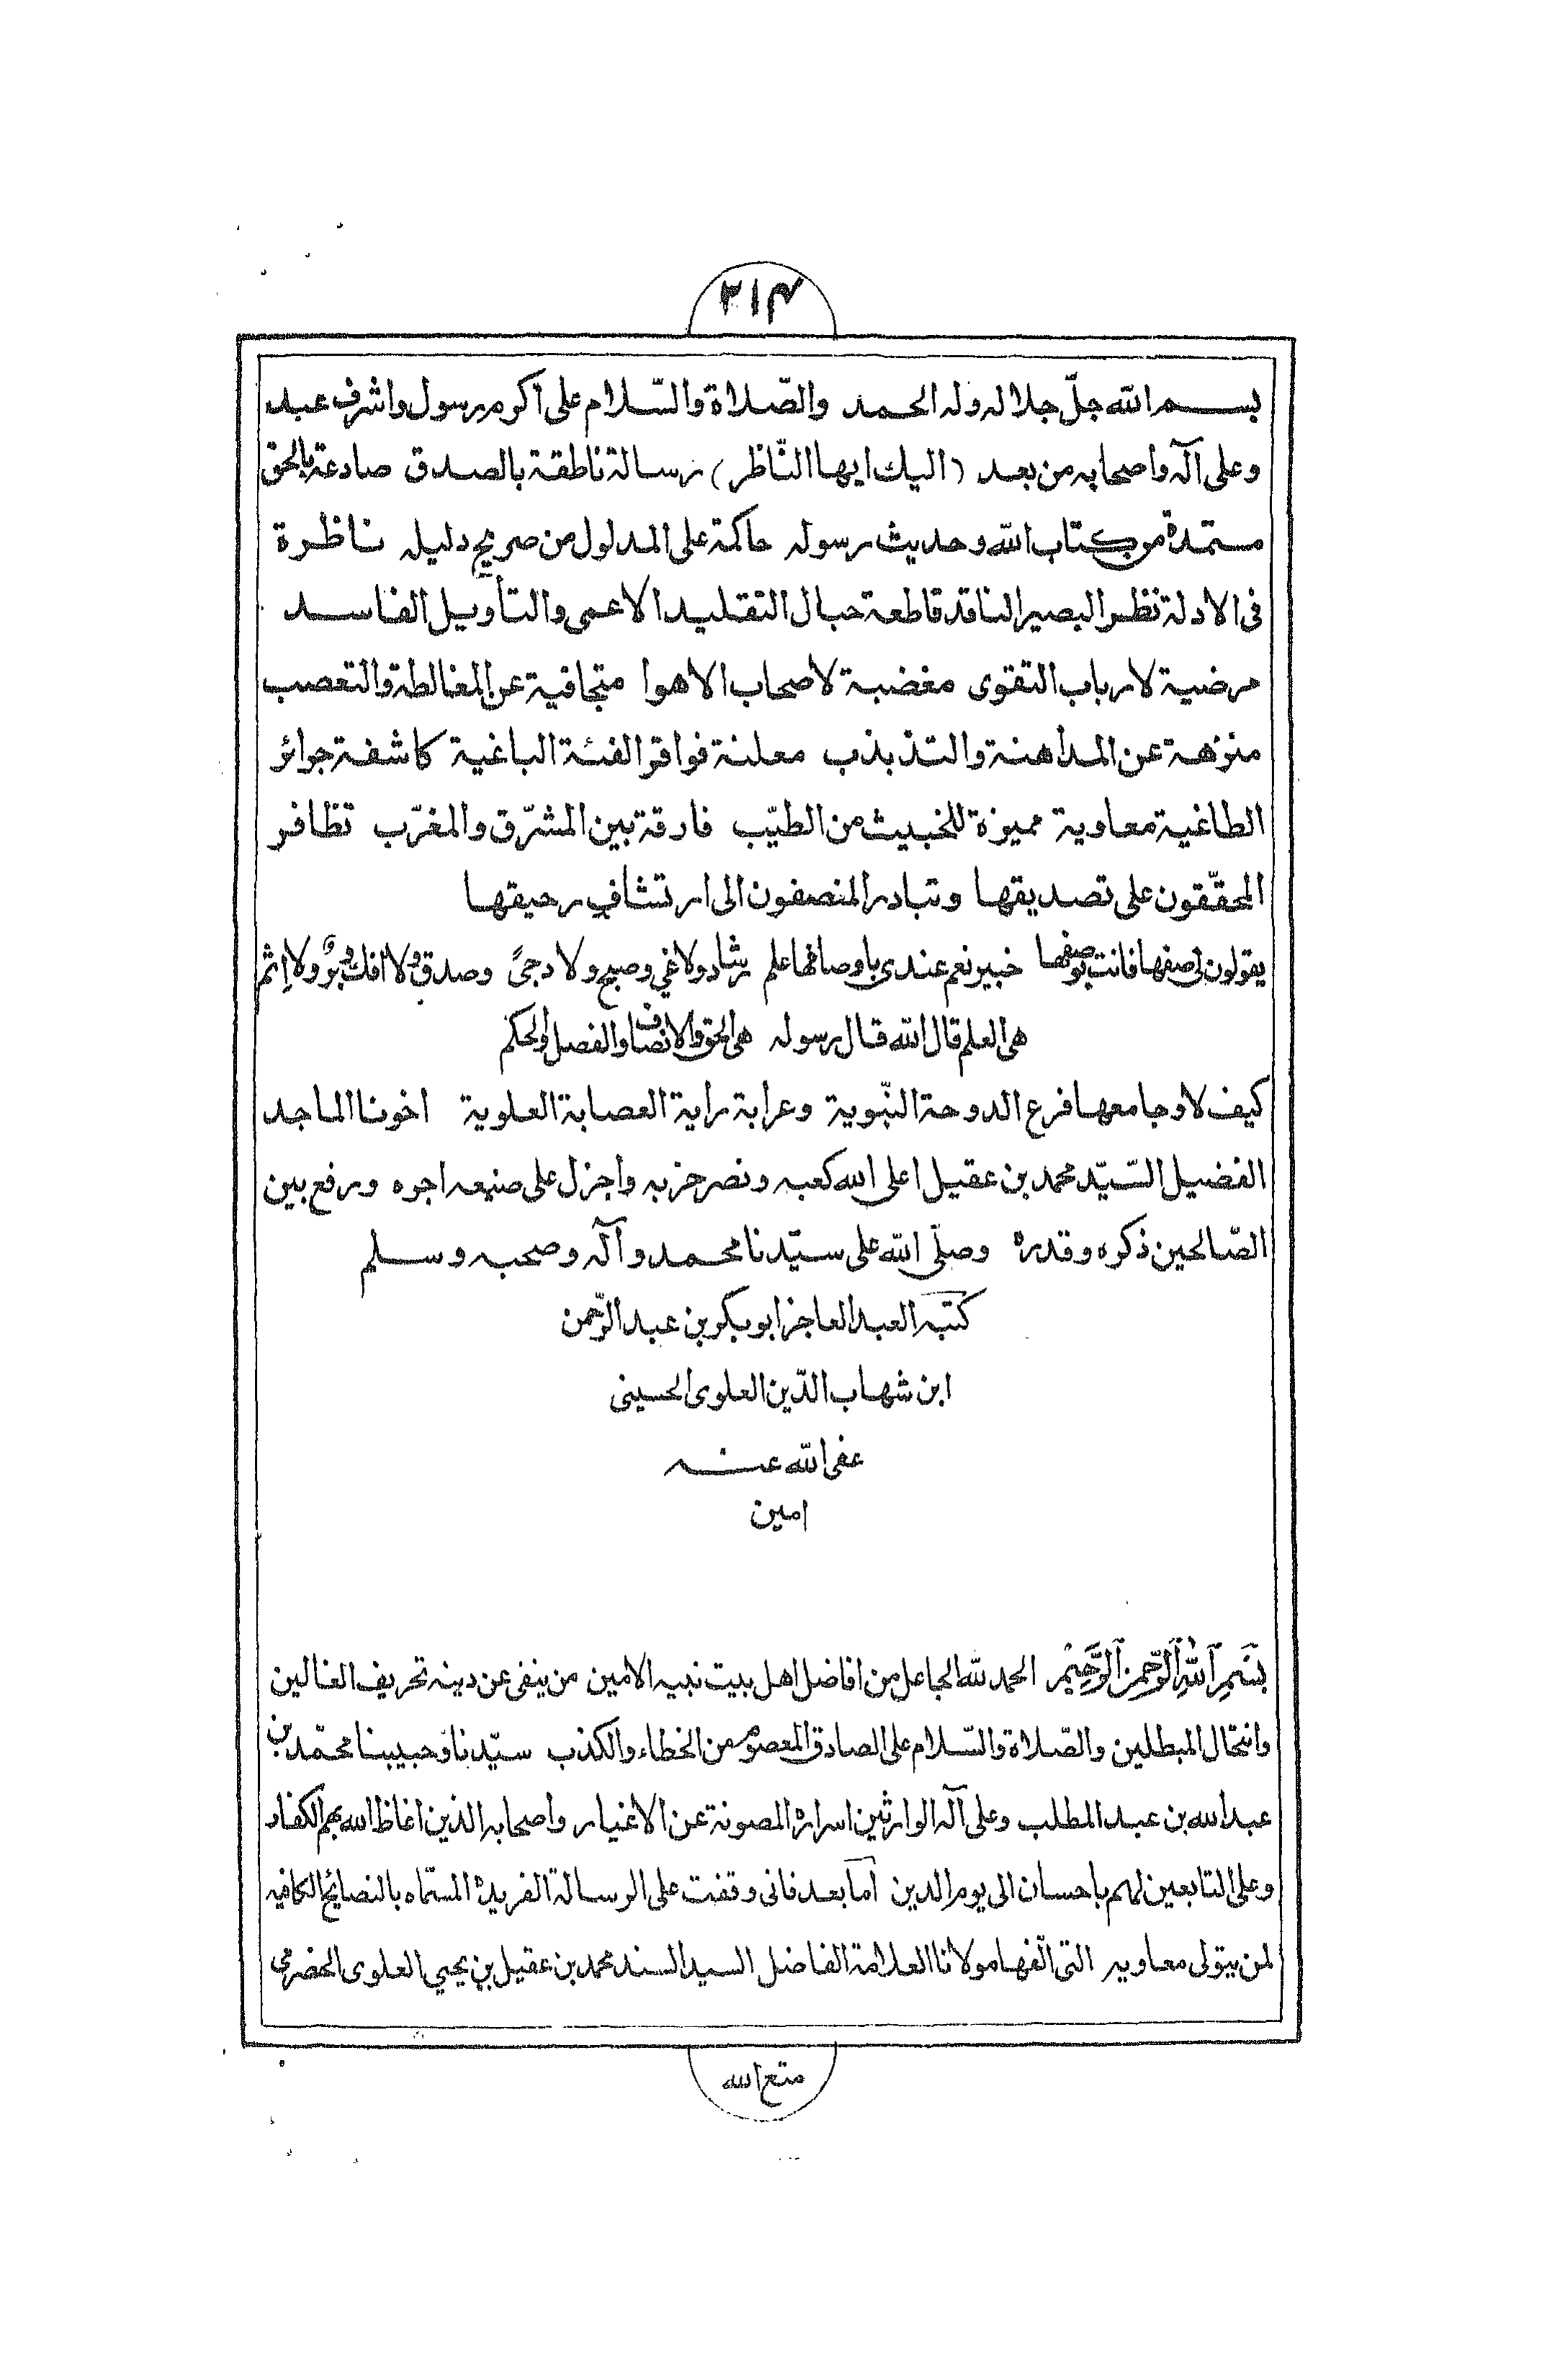 ٢١٤
بسم الله جلّ جلاله وله الحمد والصّلاة والسّلام على اكرم رسول واشرف عبد
وعلى آله واصحابه من بعد (اليك ايها النّاظر) رسالة ناطقة بالصدق صادعة بالحق
مستمدة من كتاب الله وحديث رسوله حاكمة على المدلول من صريح دليله ناظرة
فى الادلة نظر البصير الناقد قاطعة حبال التقليد الاعمى والتأويل الفاسد
مرضية لارباب التقوى مغضبة لاصحاب الاهوا متجافية عن المغالطة والتعصب
منزهة عن المداهنة والتذبذب معلنة فواقر الفئة الباغية كاشفة جرائر
الطاغية معاوية مميزة للخبيث من الطيّب فارقة بين المشرّق والمغرّب تظافر
المحقّقون على تصديقها وتبادر المنصفون الى ارتشاف رحيقها
يقولون لى صفها فانت بوصفها خبير نعم عندى باوصافها علم رشاد ولاغي وصبح ولا دجىً وصدق ولا افك وبرٌ ولا اِثم
هى العلم قال الله قال رسوله هى الحق والانصاف والفصل والحكم
كيف لا وجامعها فرع الدوحة النّبوية وعرابة راية العصابة العلوية اخونا الماجد
الفضيل السّيّد محمد بن عقيل اعلى الله كعبه ونصر حزبه واجزل على صنيعه اجره ورفع بين
الصّالحين ذكره وقدره وصلّى الله على سيّدنا محمد وآله وصحبه وسلم
كتبه العبد العاجز ابوبكر بن عبد الرّحمن
ابن شهاب الدّين العلوى الحسينى
عفى الله عنه
امين
بِسْمِ ٱللهِ ٱلرَّحْمٰنِ ٱلرَّحِيْمِ الحمد لله الجاعل من افاضل اهل بيت نبيه الامين من ينفى عن دينه تحريف الغالين
وانتحال المبطلين والصّلاة والسّلام على الصادق المعصوم من الخطاء والكذب سيّدنا وحبيبنا محمّد بن
عبد الله بن عبد المطلب وعلى آله الوارثين اسراره المصونة عن الاغيار واصحابه الذين اغاظ الله بهم الكفار
وعلى التابعين لهم باحسان الى يوم الدين اما بعد فانى وقفت على الرسالة الفريدة المسمّاه بالنصائح الكافيه
لمن يتولى معاويه التى الّفها مولانا العلامة الفاضل السيد السند محمد بن عقيل بن يحيى العلوى الحضرمى
متع الله